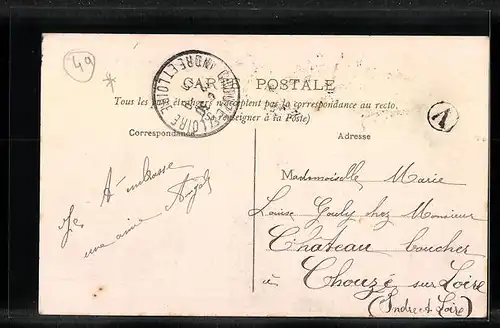 49
CARTE POSTALE
Tous les pays étrangers n'acceptent pas la correspondance au recto.
(Se renseigner à la Poste)
Correspondance
Adresse
Je t'embrasse
une amie Angèle
Mademoiselle Marie
Louise Gouly chez Monsieur
Château boucher
à Chouzé sur Loire
(Indre et Loire)
INDRE ET LOIRE
V